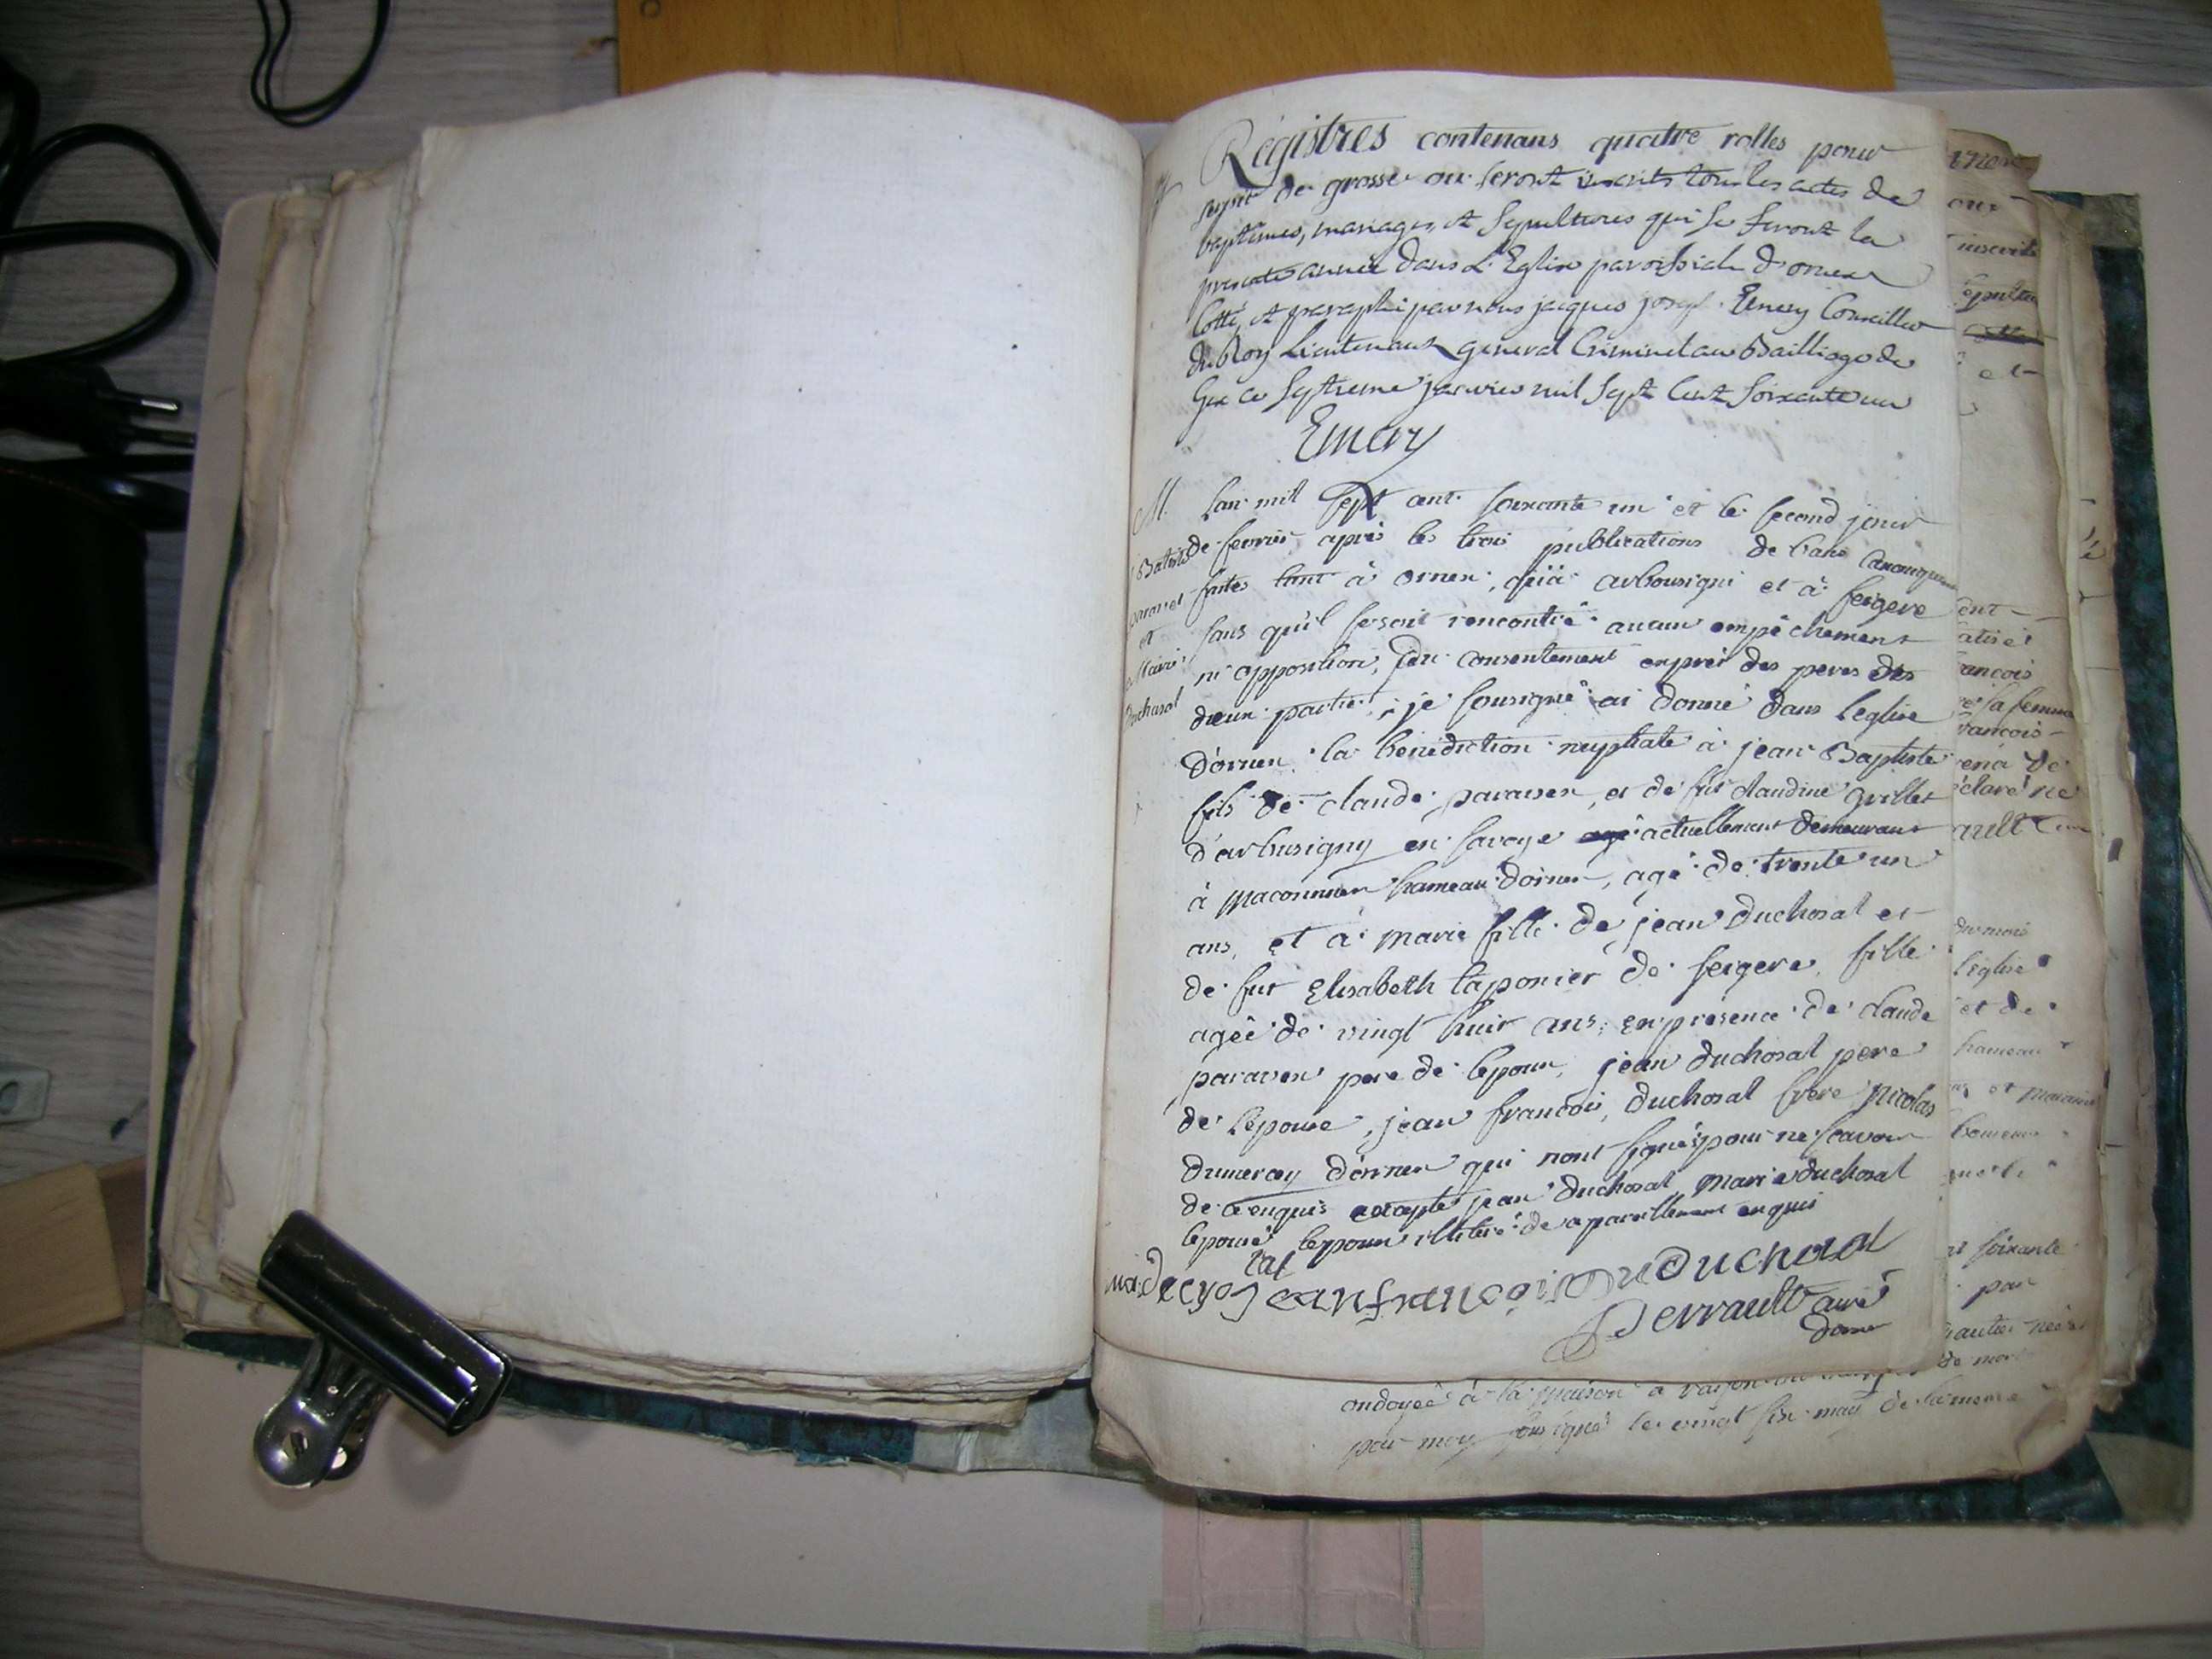 Registres contenans quatre rolles pour
servir de grosse ou seront inscrits tous les actes de
baptêmes, mariages, et sepultures qui se feront la
presente année dans L'Eglise paroissiale d'ornex
Cotté, et paraphé par nous jacques joseph Emery Conseiller
du Roy Lieutenant general Criminel au Bailliage de
Gex ce septieme janvier mil sept cent soixante un
Emery
M.
Batiste
paravet
et
Marie
Duchosal
Lan mil sept cent soixante un et le second jour
de fevrier après les trois publications de bans canoniquement
faites tant à ornex, qu'à arbousigni et à feigere
sans qu'il se soit rencontré aucun empêchement
ni opposition, du consentement exprès des peres des
deux parties, je sousigné ai donné dans leglise
d'ornex la benediction nuptiale à jean Baptiste
fils de claude paravex, et de fut claudine grillet
d'arbusigny en savoye actuellement demeurant
à maconnex hameau dornex, agé de trente un
ans, et à marie fille de jean duchosal et
de fut Elisabeth taponier de feigere, fille
agée de vingt huit ans; en présence de claude
paravex pere de lepoux, jean duchosal pere
de l'epouse, jean francois duchosal frere nicolas
dumercy dornex qui nont signés pour ne scavoir
de ce enquis excepté jean duchosal marie duchosal
lepouse lepoux illiteré de ce pareillement enquis
jeanfrancois Duchosal
Perrault curé
dornex
ondoyée à la maison a raison du
par moy sousigné le vingt six may de la meme
inscrits
ancois
sa femme
francois
eclaré ne
ault
du mois
l'eglise
et de
hameau
et maraine
soixante
par